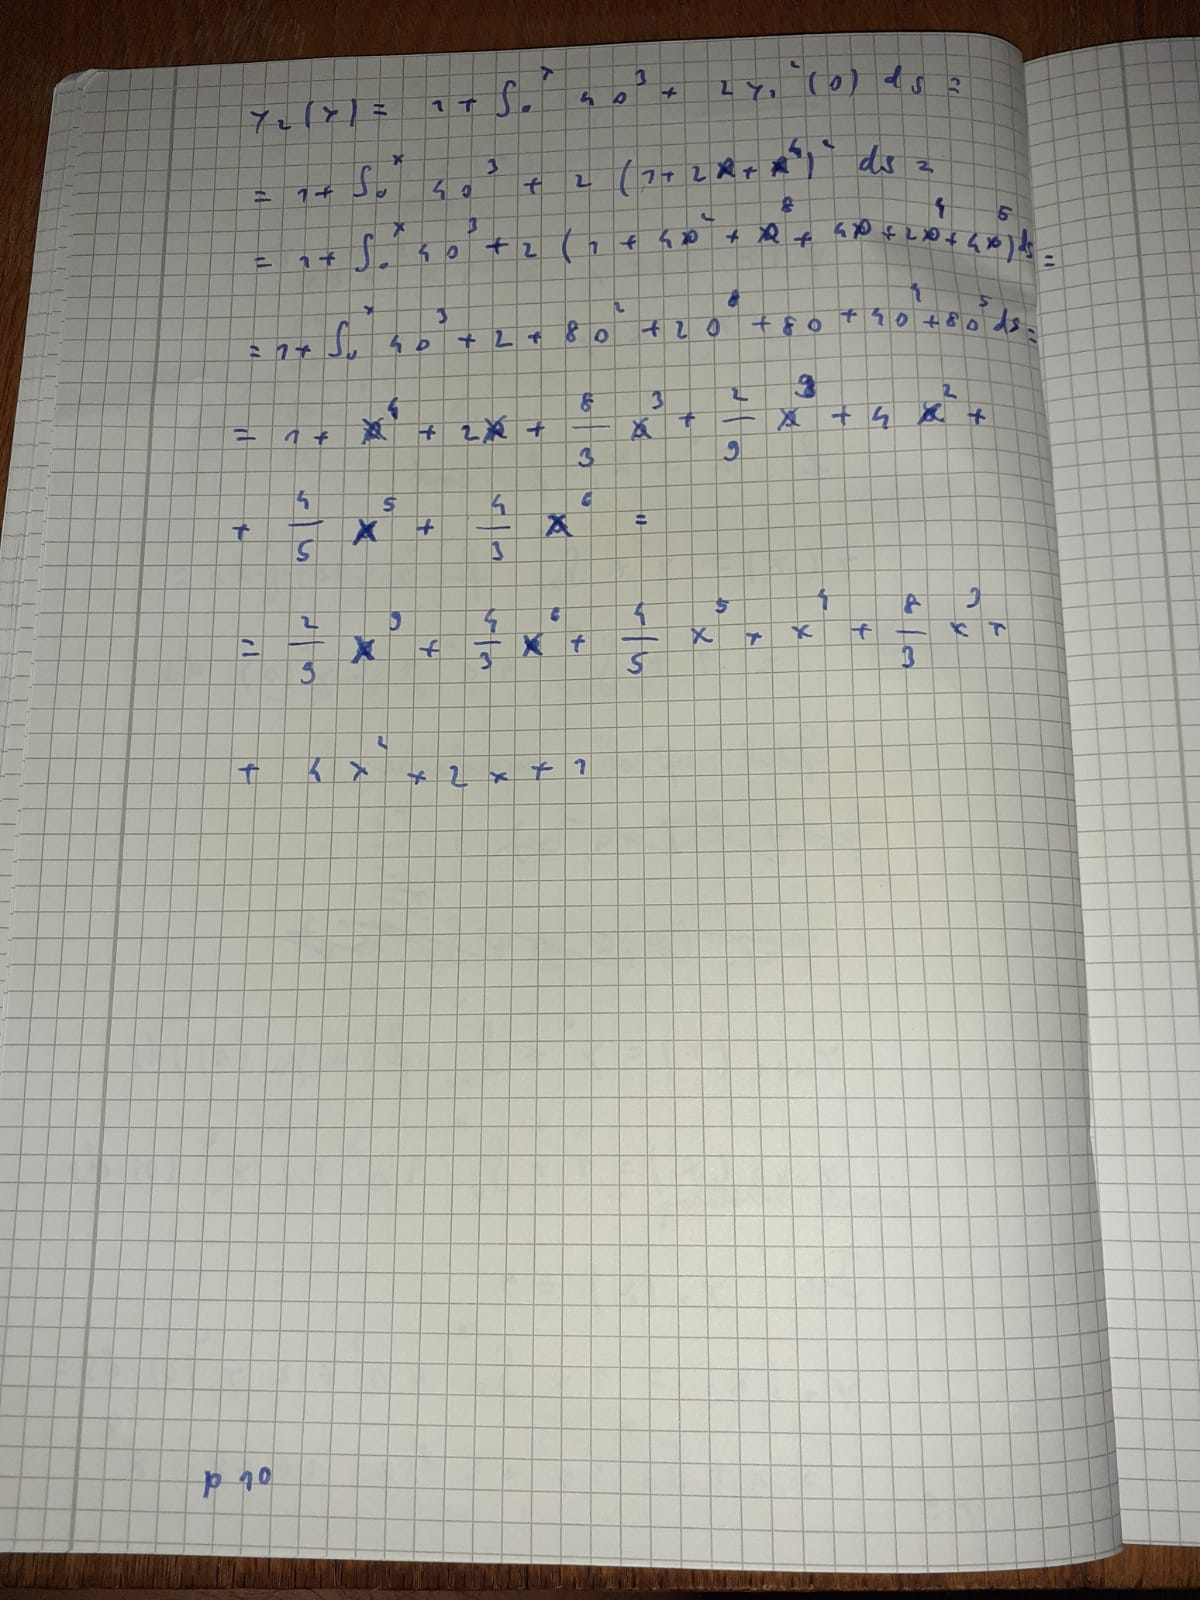 y₂(x) = 1 + ∫₀ˣ 4s³ + 2y₁²(s) ds =
= 1 + ∫₀ˣ 4s³ + 2(1 + 2s + s⁴)² ds =
= 1 + ∫₀ˣ 4s³ + 2(1 + 4s² + s⁸ + 4s + 2s⁴ + 4s⁵) ds =
= 1 + ∫₀ˣ 4s³ + 2 + 8s² + 2s⁸ + 8s + 4s⁴ + 8s⁵ ds =
= 1 + x⁴ + 2x + 8/3 x³ + 2/9 x⁹ + 4x² +
+ 4/5 x⁵ + 4/3 x⁶ =
= 2/9 x⁹ + 4/3 x⁶ + 4/5 x⁵ + x⁴ + 8/3 x³ +
+ 4x² + 2x + 1
p 10